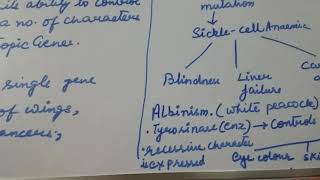 ability to control
a no. of characters
topic Genes.
single gene
of wings,
mutation
Sickle-cell Anaemia
Blindness
Liver
failure
Albinism. (white peacock)
• Tyrosinase (enz) → Controls
• recessive character
is expressed
Eye colour